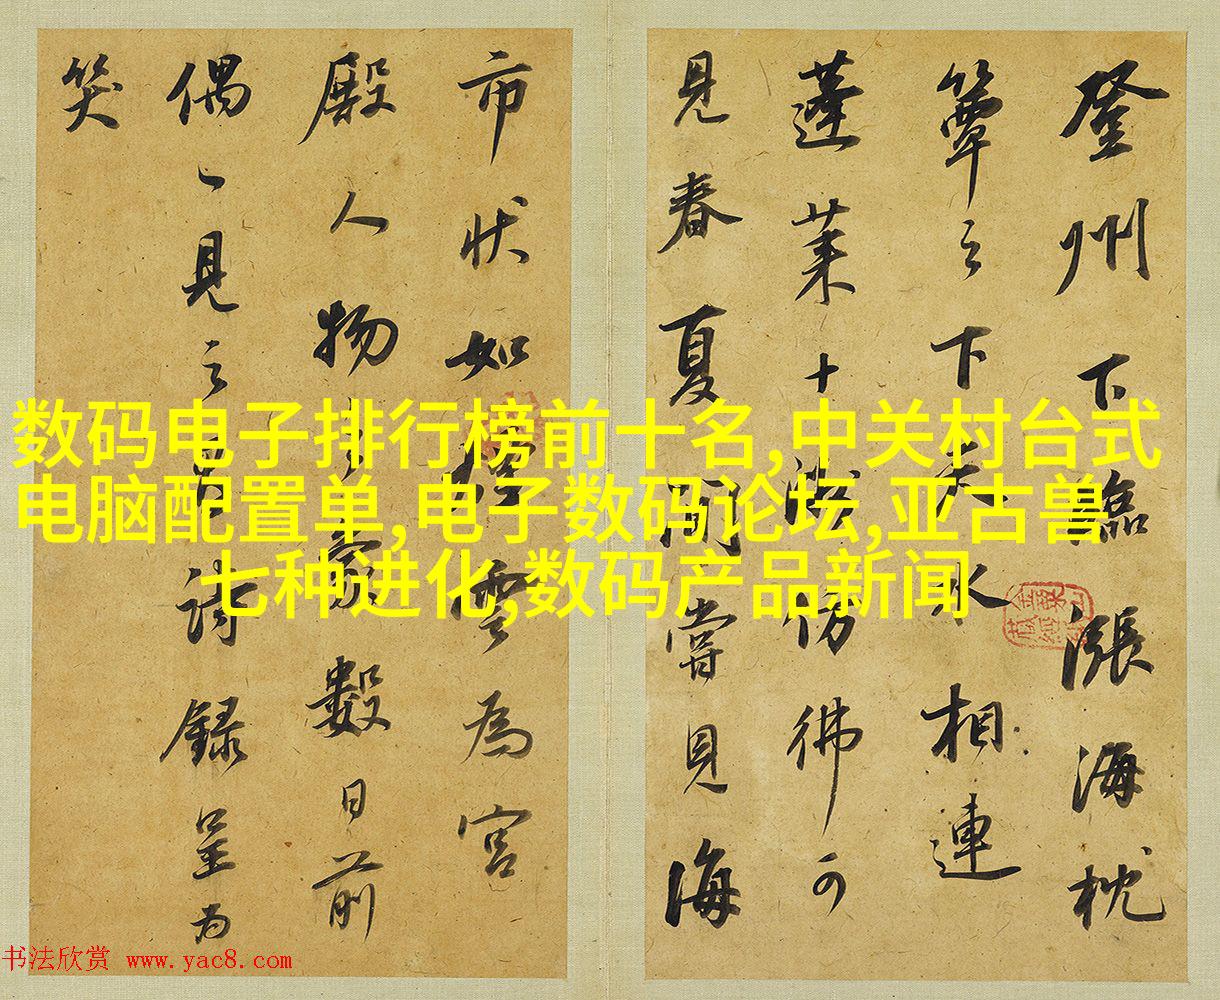 登州下臨漲海枕
簟之下天水相連
蓬莱十洲仿彿可
見春夏間嘗見海
市状如煙雲為宮
殿人物之象數日前
偶一見之有詩録呈為
笑
数码电子排行榜前十名,中关村台式
电脑配置单,电子数码论坛,亚古兽
七种进化,数码产品新闻
书法欣赏 www.yac8.com